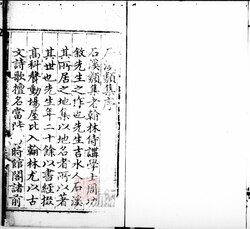 石溪類集序
石溪類集者翰林侍講學士周功
敘先生之作也先生吉水人石溪
其所居之地集以地名者所以著
其世也先生年二十餘以書經掇
高科聲動場屋比入翰林尤以古
文詩歌擅名當時館閣諸前